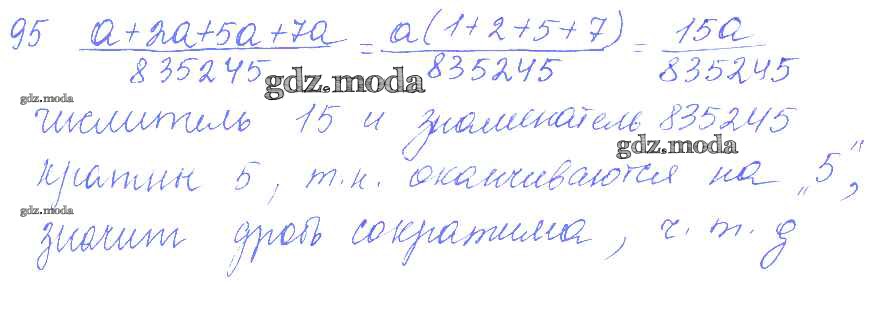 95 (a+2a+5a+7a)/835245 = a(1+2+5+7)/835245 = 15a/835245
gdz.moda
gdz.moda
числитель 15 и знаменатель 835245
gdz.moda
кратны 5, т.к. оканчиваются на „5",
gdz.moda
значит дробь сократима, ч.т.д